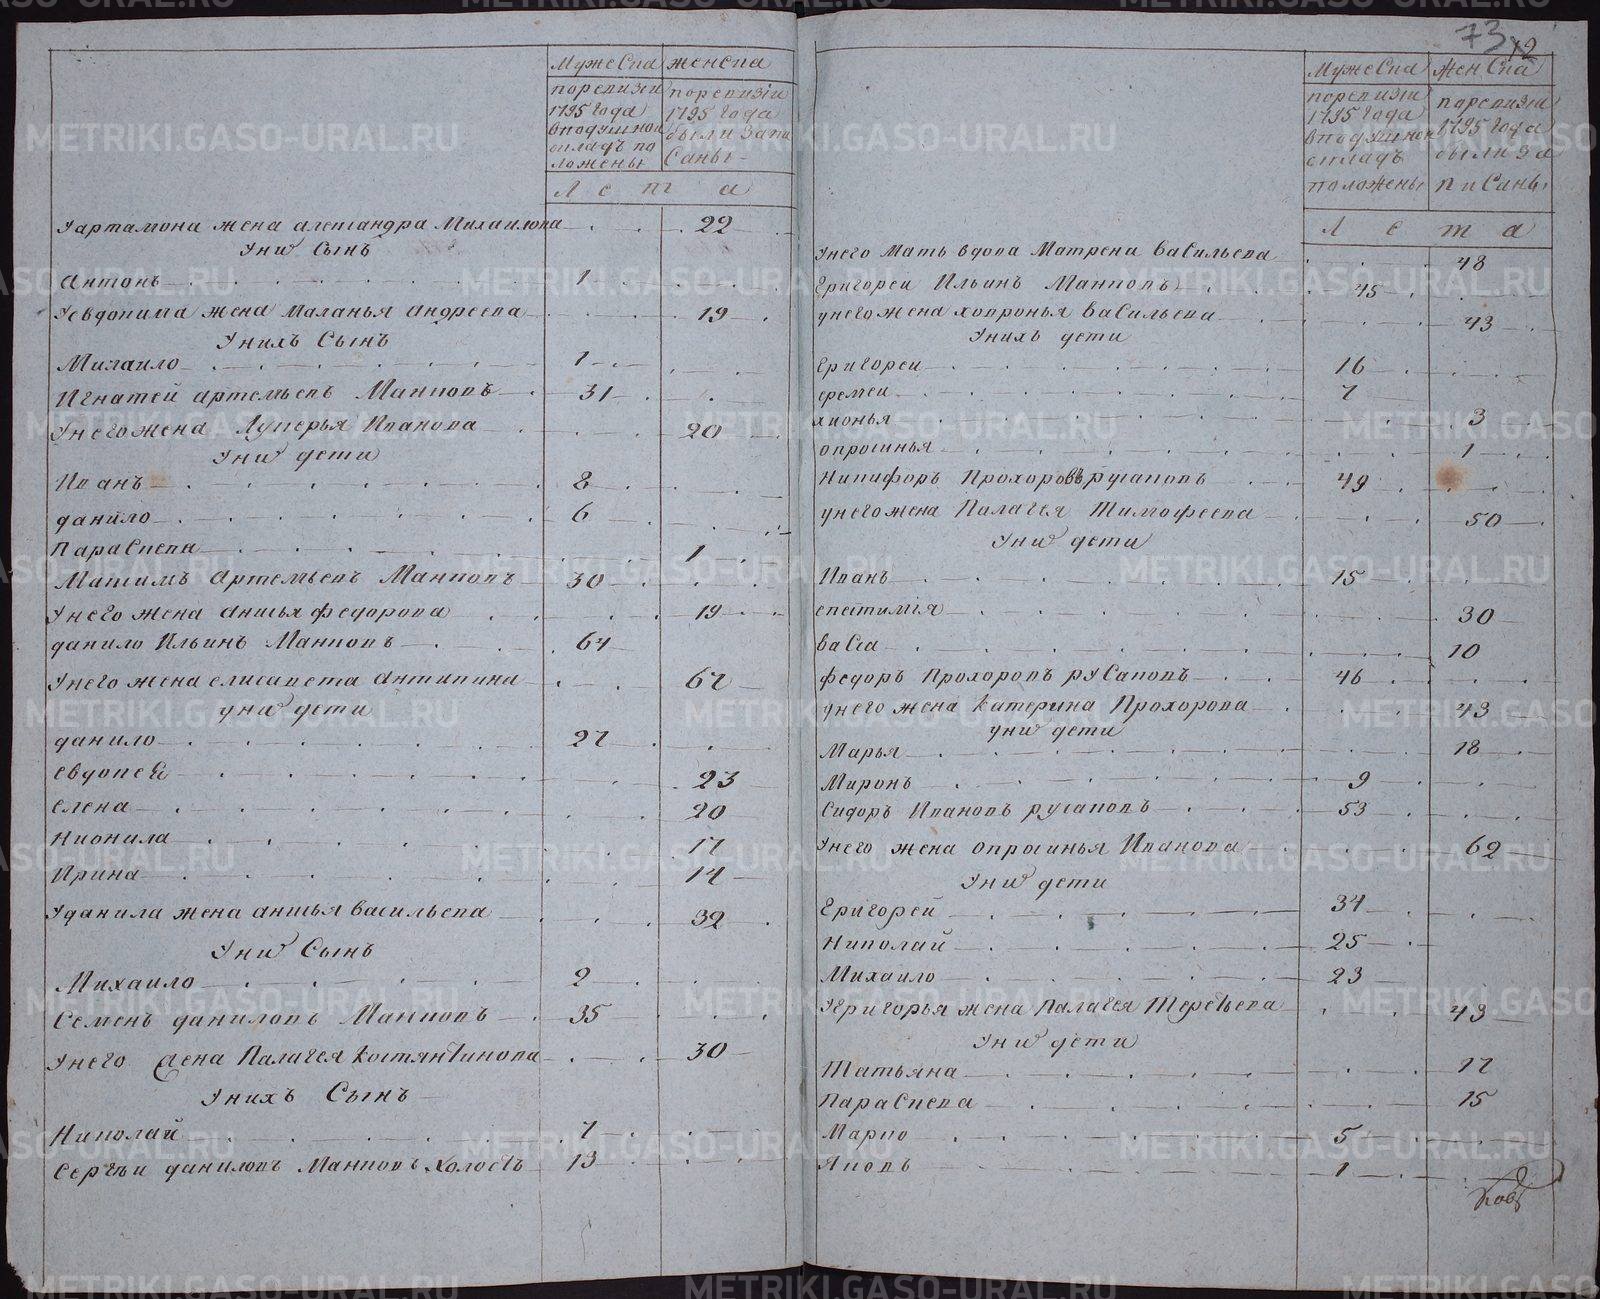 73
Мужеска
женска
поревизии
1795 года
вподушной
окладъ по
ложены
поревизіи
1795 года
были запи
саны
Лета
Уартамона жена александра Михаилова 22
Уних сынъ
антонъ 1
Уевдокима жена маланья андреева 19
Унихъ сынъ
Михаило 1
Игнатей артемьевъ Манковъ 31
Унегожена Лукерья Иванова 20
Уних дети
Иванъ 8
данило 6
параскева 1
Максимъ артемьевъ Манковъ 30
Унего жена анисья федорова 19
данило Ильинъ Манковъ 64
Унего жена елисавета антипина 62
уних дети
данило 27
евдокея 23
елена 20
Нионила 17
Ирина 14
Уданила жена анисья васильева 32
Уних Сынъ
Михаило 2
Семенъ даниловъ Манковъ 35
Унего жена Палагея костянтинова 30
Унихъ Сынъ
Николай 7
Сергѣи даниловъ Манковъ холостъ 13
Мужеска
женска
поревизіи
1795 года
вподушной
окладъ
положены
поревизіи
1795 года
были за
писаны
Лета
Унего мать вдова Матрена васильева 48
Григореи Ильинъ Манковъ 45
унегожена хопронья васильева 43
Унихъ дети
Григореи 16
еремеи 7
хионья 3
опросинья 1
Никифоръ Прохоровъ русаковъ 49
унегожена Палагея Тимофеева 50
Уних дети
Иванъ 15
епетимія 30
васса 10
федоръ Прохоровъ русаковъ 46
унего жена катерина Прохорова 43
уних дети
Марья 18
Миронъ 9
Сидоръ Ивановъ русаковъ 53
Унего жена опросинья Иванова 62
Уних дети
Григорей 34
Николай 25
Михаило 23
Угригорья жена Палагея Терентьева 43
Уних дети
Татьяна 17
Параскева 15
Марко 5
Яковъ 1
METRIKI.GASO-URAL.RU